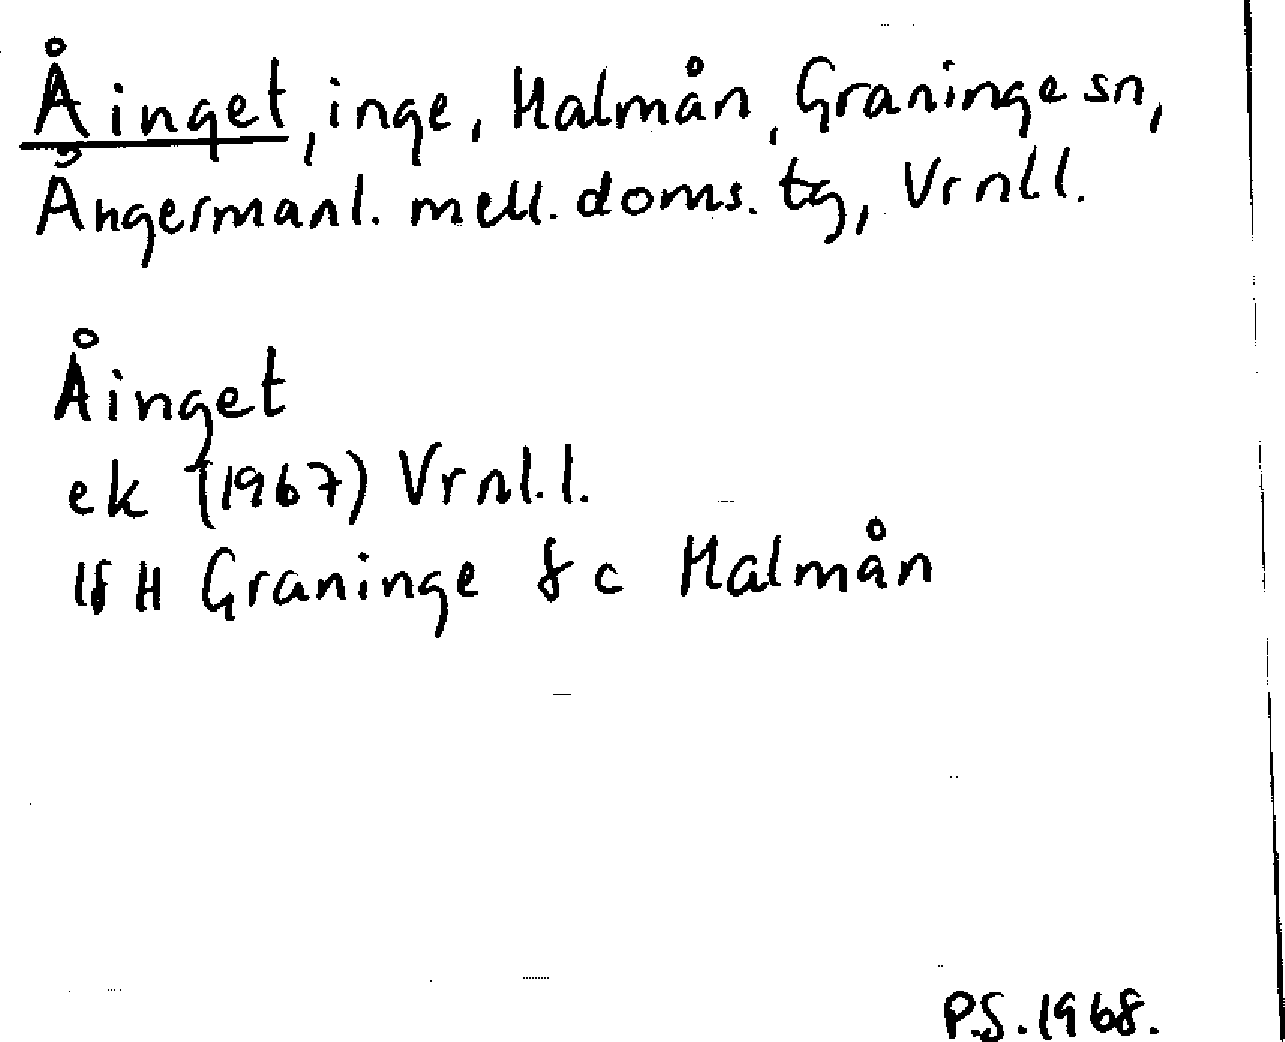 Åinget, inge, Halmån, Graninge sn,
Ångermanl. mell. doms. tg, Vrnl l.
Åinget
ek (1967) Vrnl. l.
18 H Graninge 8 c Halmån
P.S. 1968.